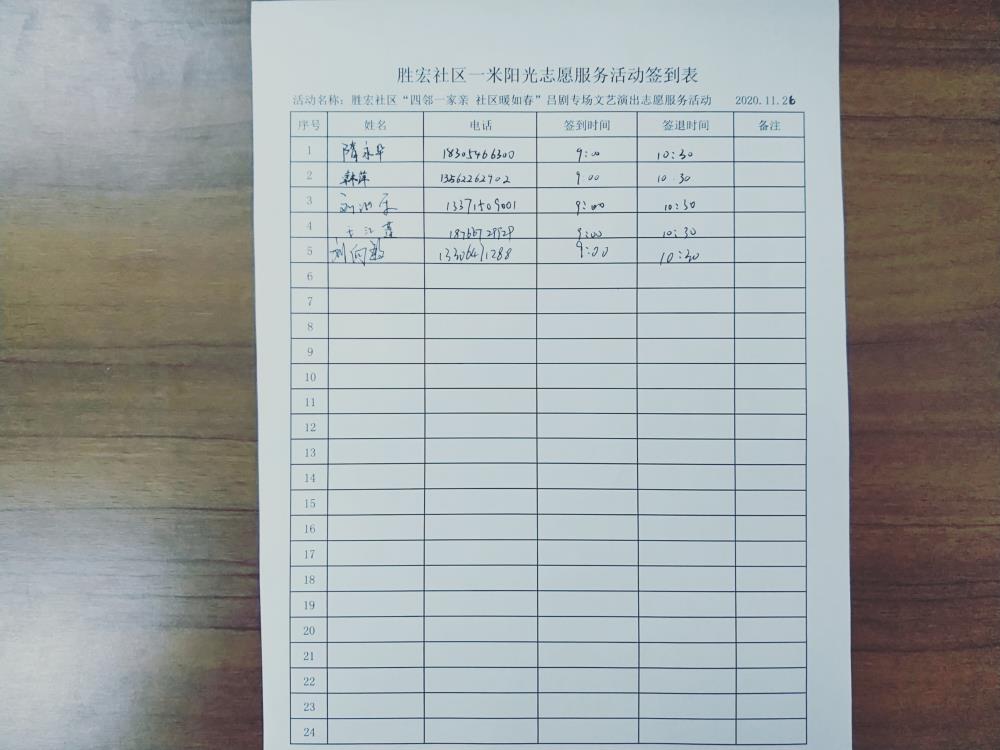 胜宏社区一米阳光志愿服务活动签到表
活动名称：胜宏社区“四邻一家亲 社区暖如春”吕剧专场文艺演出志愿服务活动 2020.11.26
序号 姓名 电话 签到时间 签退时间 备注
1 隋永华 18305466300 9:00 10:30
2 韩萍 13562262902 9:00 10:30
3 刘 13371509001 9:00 10:30
4 9:00 10:30
5 刘向敏 13306471288 9:00 10:30
6
7
8
9
10
11
12
13
14
15
16
17
18
19
20
21
22
23
24